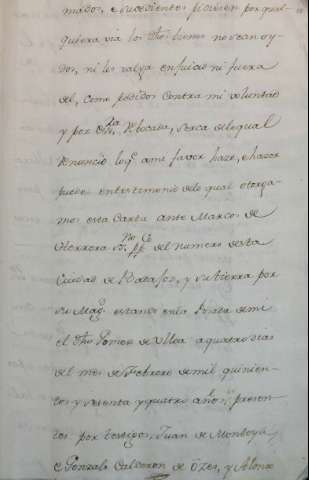 mados, e sucedientes pidiesen por qual-
quiera via los dhos bienes no sean oy-
dos, ni les valga en juicio ni fuera
del, como pedidos contra mi voluntad
y por cosa rebocada, y cerca de lo qual
renuncio lo q. a mi favor haze, e hazer
puede en testimonio de lo qual otorga-
mos esta Carta ante Marcos de
Herrera ss.no pp.co del numero desta
Ciudad de Badajoz, y su tierra por
su Mag. estando en la Posada de mi
el dho Gomez de Ulloa a quatro dias
del mes de Febrero de mil quinien-
tos y setenta y quatro años, presen-
tes por testigos, Juan de Montoya,
e Gonzalo Calderon de y Alonso